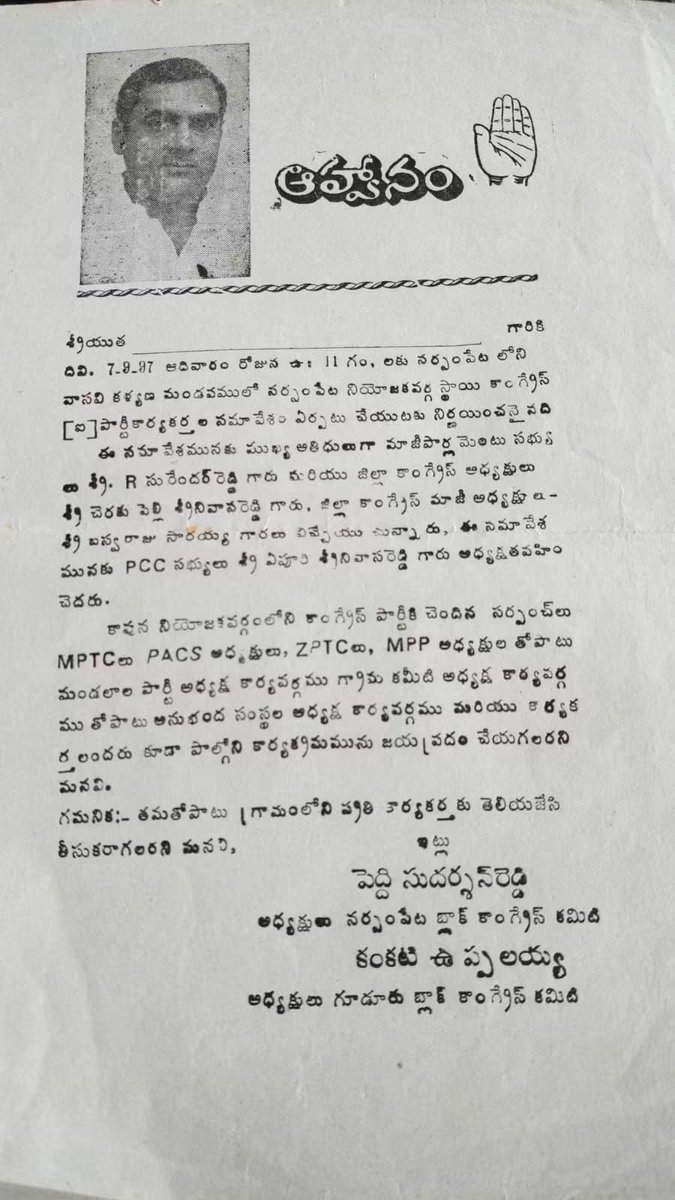 ఆహ్వానం
శ్రీయుత గారికి
దివి. 7-9-97 ఆదివారం రోజున ఉః 11 గం, లకు నర్సంపేట లోని
వాసవి కళ్యణ మండపములో నర్సంపేట నియోజకవర్గ స్థాయి కాంగ్రేస్
[ఐ] పార్టీకార్యకర్తల సమావేశం ఏర్పటు చేయుటకు నిర్ణయించనై నది
ఈ సమావేశమునకు ముఖ్య అతిధులుగా మాజీపార్ల మెంటు సభ్యు
లు శ్రీ. R సురేందర్‌రెడ్డి గారు మరియు జిల్లా కాంగ్రేస్ అధ్యక్షులు
శ్రీ చెరకు పెల్లి శ్రీనివాసరెడ్డి గారు, జిల్లా కాంగ్రేస్ మాజీ అధ్యక్షులు-
శ్రీ బస్వరాజు సారయ్య గారలు విచ్చేయు చున్నారు, ఈ సమావేశ
మునకు PCC సభ్యులు శ్రీ ఏపూరి శ్రీనివాసరెడ్డి గారు అధ్యక్షతవహిం
చెదరు.
కావున నియోజకవర్గంలోని కాంగ్రేస్ పార్టీకి చెందిన సర్పంచ్‌లు
MPTCలు PACS అధ్యక్షులు, ZPTCలు, MPP అధ్యక్షుల తోపాటు
మండలాల పార్టీ అధ్యక్ష కార్యవర్గము గ్రామ కమిటి అధ్యక్ష కార్యవర్గ
ము తోపాటు అనుభంద సంస్థల అధ్యక్ష కార్యవర్గము మరియు కార్యక
ర్తలందరు కూడా పాల్గోని కార్యక్రమమును జయప్రదం చేయగలరని
మనవి.
గమనికః- తమతోపాటు గ్రామంలోని ప్రతి కార్యకర్తకు తెలియజేసి
తీసుకరాగలరని మనవి,
ఇట్లు
పెద్ది సుదర్శన్‌రెడ్డి
అధ్యక్షులు నర్సంపేట బ్లాక్ కాంగ్రేస్ కమిటి
కంకటి ఉప్పలయ్య
అధ్యక్షులు గూడూరు బ్లాక్ కాంగ్రేస్ కమిటి